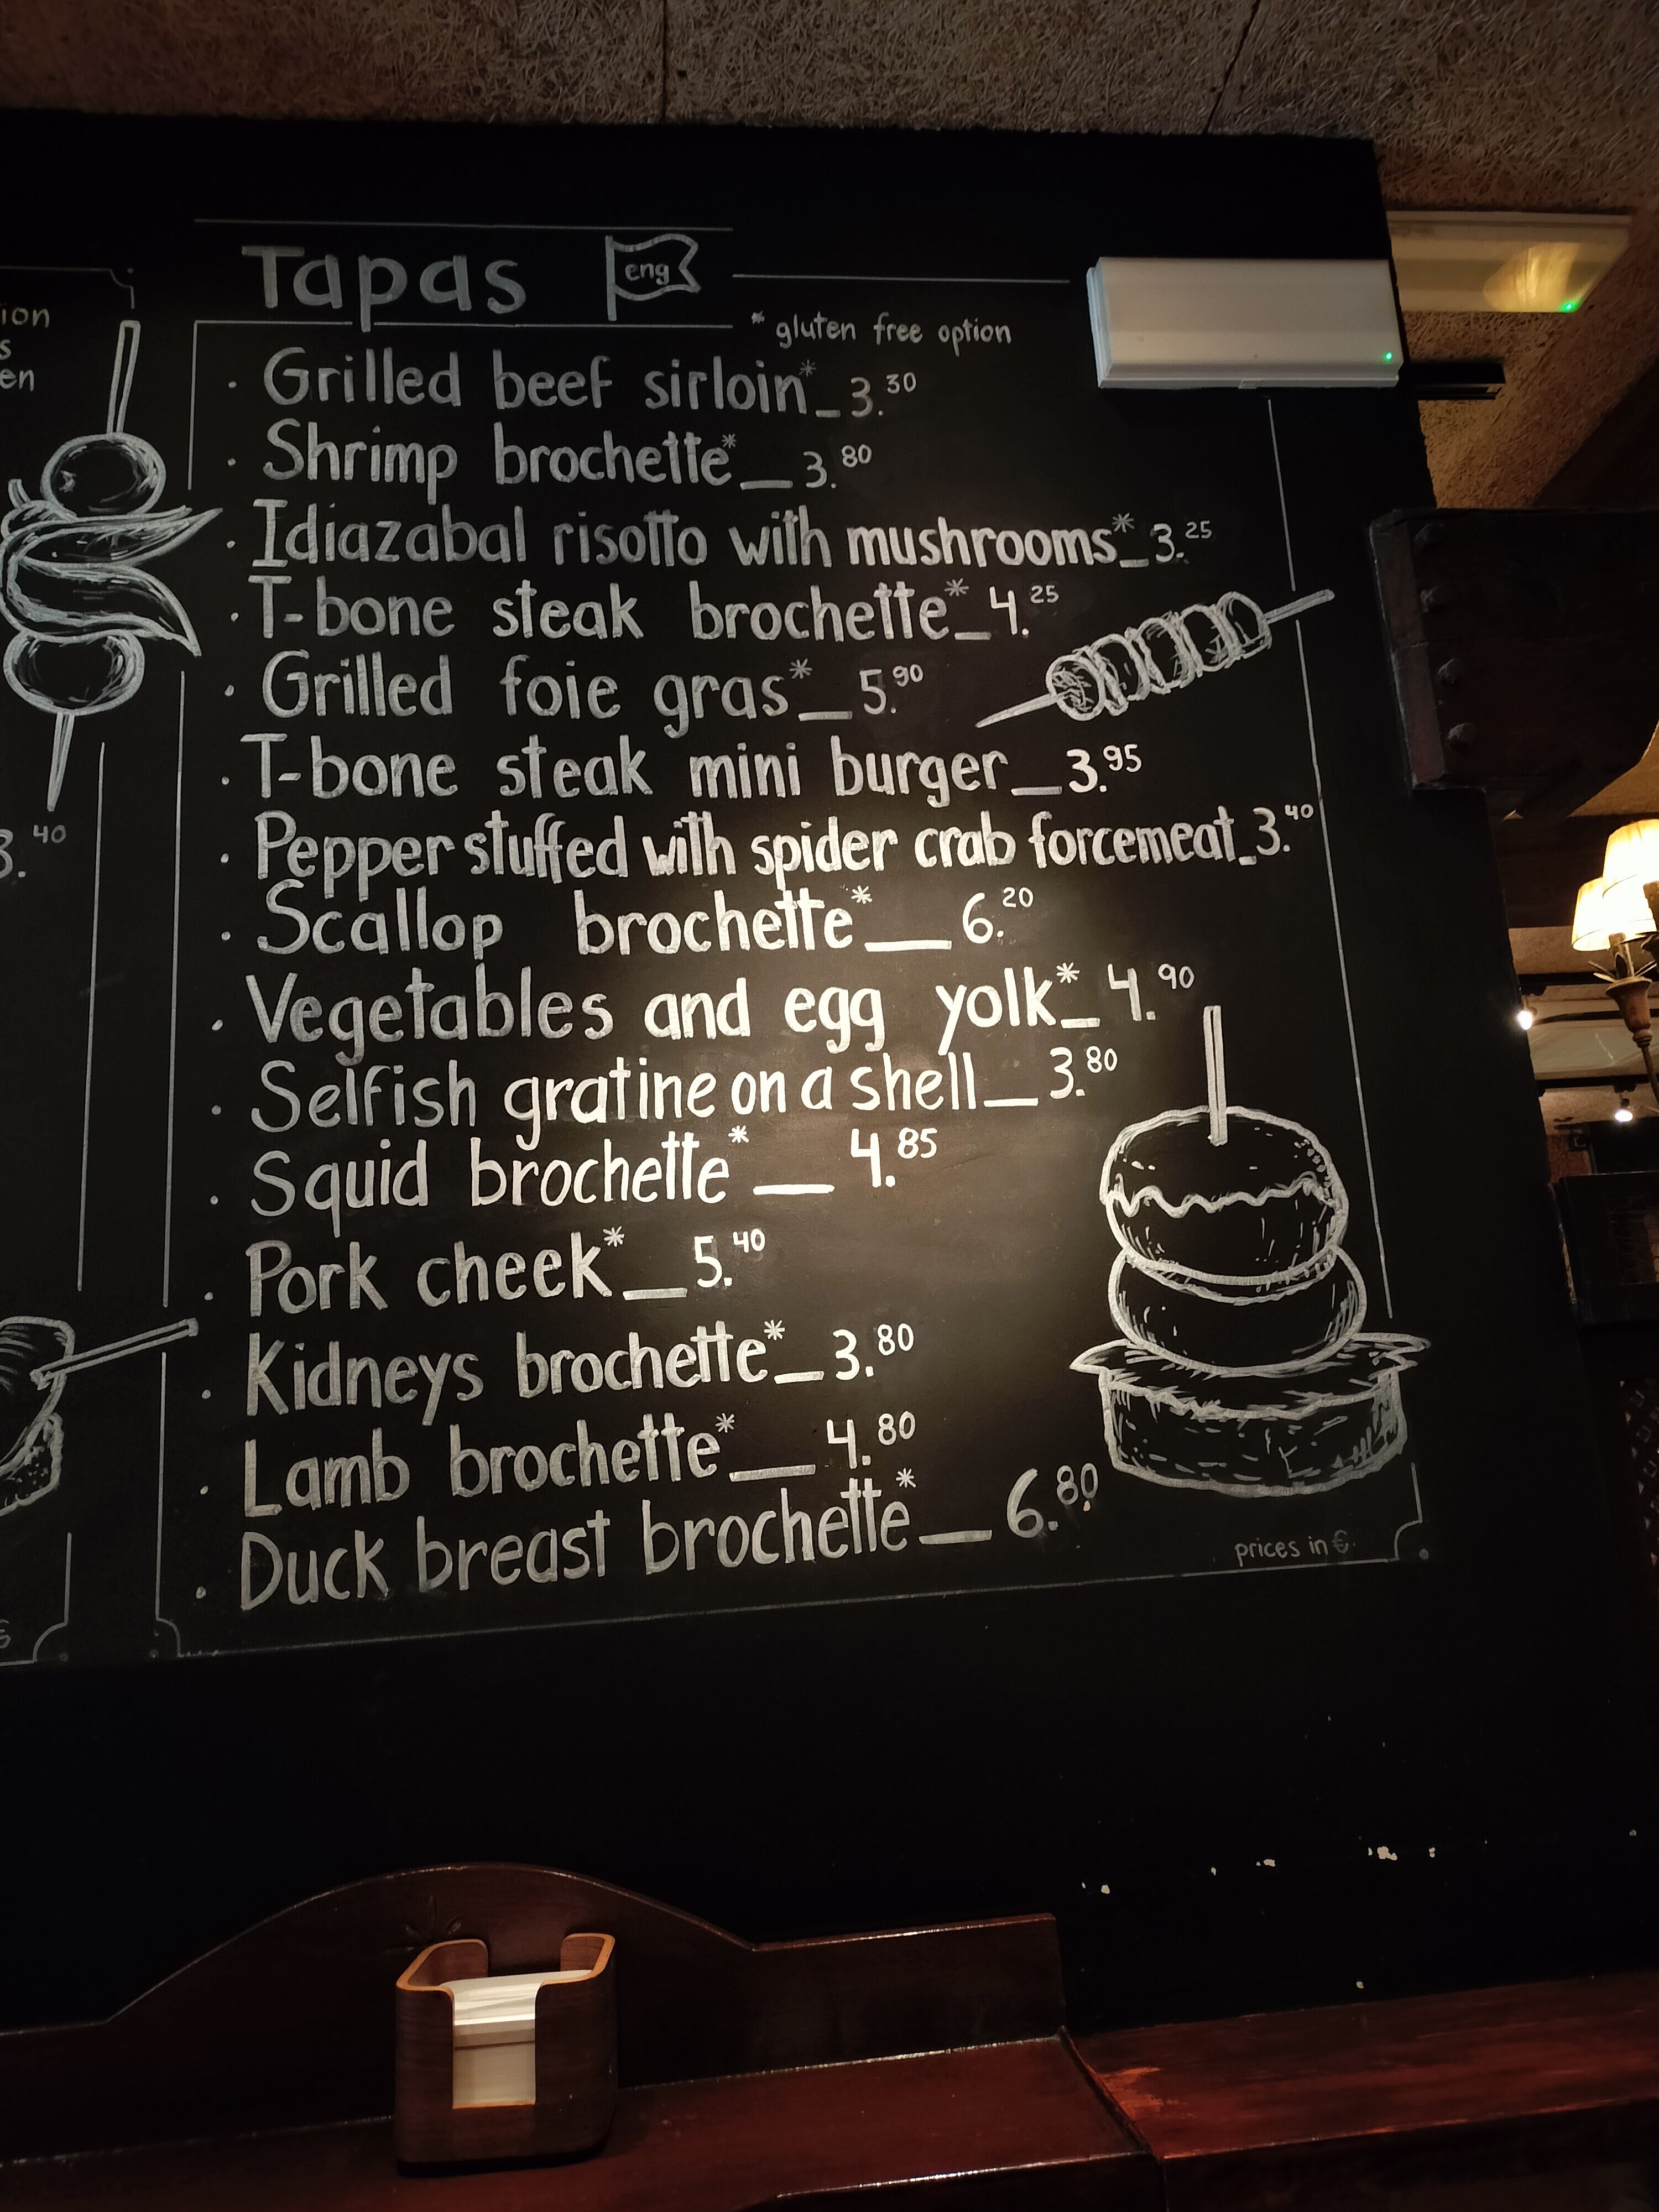 Tapas eng
* gluten free option
· Grilled beef sirloin* _ 3.30
· Shrimp brochette* _ 3.80
· Idiazabal risotto with mushrooms* _ 3.25
· T-bone steak brochette* _ 4.25
· Grilled foie gras* _ 5.90
· T-bone steak mini burger _ 3.95
· Pepper stuffed with spider crab forcemeat _ 3.40
· Scallop brochette* _ 6.20
· Vegetables and egg yolk* _ 4.90
· Selfish gratine on a shell _ 3.80
· Squid brochette* _ 4.85
· Pork cheek* _ 5.40
· Kidneys brochette* _ 3.80
· Lamb brochette* _ 4.80
· Duck breast brochette* _ 6.80
prices in €
3.40